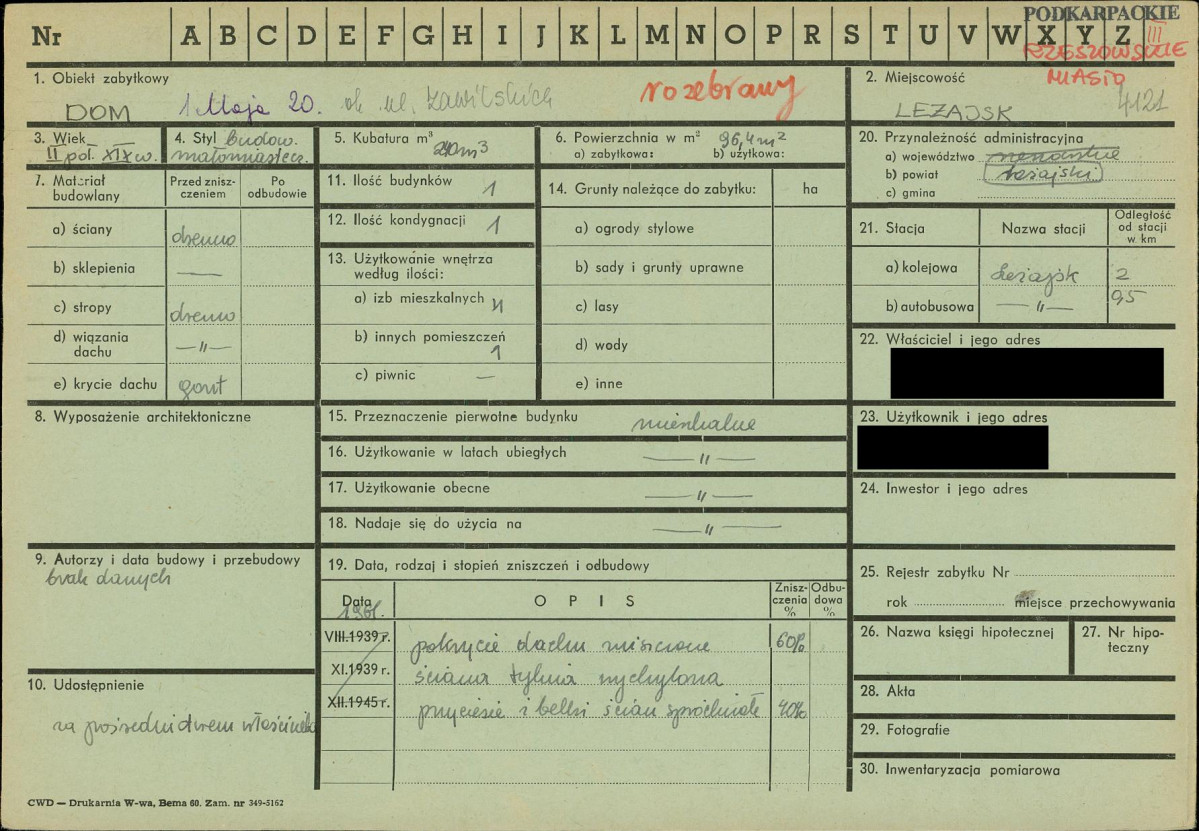 PODKARPACKIE
Nr A B C D E F G H I J K L M N O P R S T U V W X Y Z III
RZESZOWSKIE
MIASTO
4121
1. Obiekt zabytkowy
DOM 1 Maja 20. ob. ul. rozebrany
2. Miejscowość
LEŻAJSK
3. Wiek
II poł. XIX w.
4. Styl budown.
małomiastecz.
5. Kubatura m³
240 m³
6. Powierzchnia w m² 96,4 m²
a) zabytkowa: b) użytkowa:
20. Przynależność administracyjna
a) województwo rzeszowskie
b) powiat leżajski
c) gmina
7. Materiał budowlany
Przed zniszczeniem
Po odbudowie
a) ściany drewno
b) sklepienia —
c) stropy drewno
d) wiązania dachu —„—
e) krycie dachu gont
11. Ilość budynków 1
12. Ilość kondygnacji 1
13. Użytkowanie wnętrza
według ilości:
a) izb mieszkalnych 4
b) innych pomieszczeń
1
c) piwnic —
14. Grunty należące do zabytku: ha
a) ogrody stylowe
b) sady i grunty uprawne
c) lasy
d) wody
e) inne
21. Stacja Nazwa stacji Odległość od stacji w. km
a) kolejowa Leżajsk 2
b) autobusowa —„— 0,5
22. Właściciel i jego adres
23. Użytkownik i jego adres
24. Inwestor i jego adres
8. Wyposażenie architektoniczne
15. Przeznaczenie pierwotne budynku mieszkalne
16. Użytkowanie w latach ubiegłych —„—
17. Użytkowanie obecne —„—
18. Nadaje się do użycia na —„—
9. Autorzy i data budowy i przebudowy
brak danych
10. Udostępnienie
za pośrednictwem właściciela
19. Data, rodzaj i stopień zniszczeń i odbudowy
Data OPIS Zniszczenia % Odbudowa %
1961.
VIII.1939 r. pokrycie dachu zniszczone 60%
XI.1939 r. ściana tylnia wychylona
XII.1945 r. przyciesie i belki ścian spróchniałe 40%
25. Rejestr zabytku Nr
rok miejsce przechowywania
26. Nazwa księgi hipotecznej
27. Nr hipoteczny
28. Akta
29. Fotografie
30. Inwentaryzacja pomiarowa
CWD — Drukarnia W-wa, Bema 60. Zam. nr 349-5162